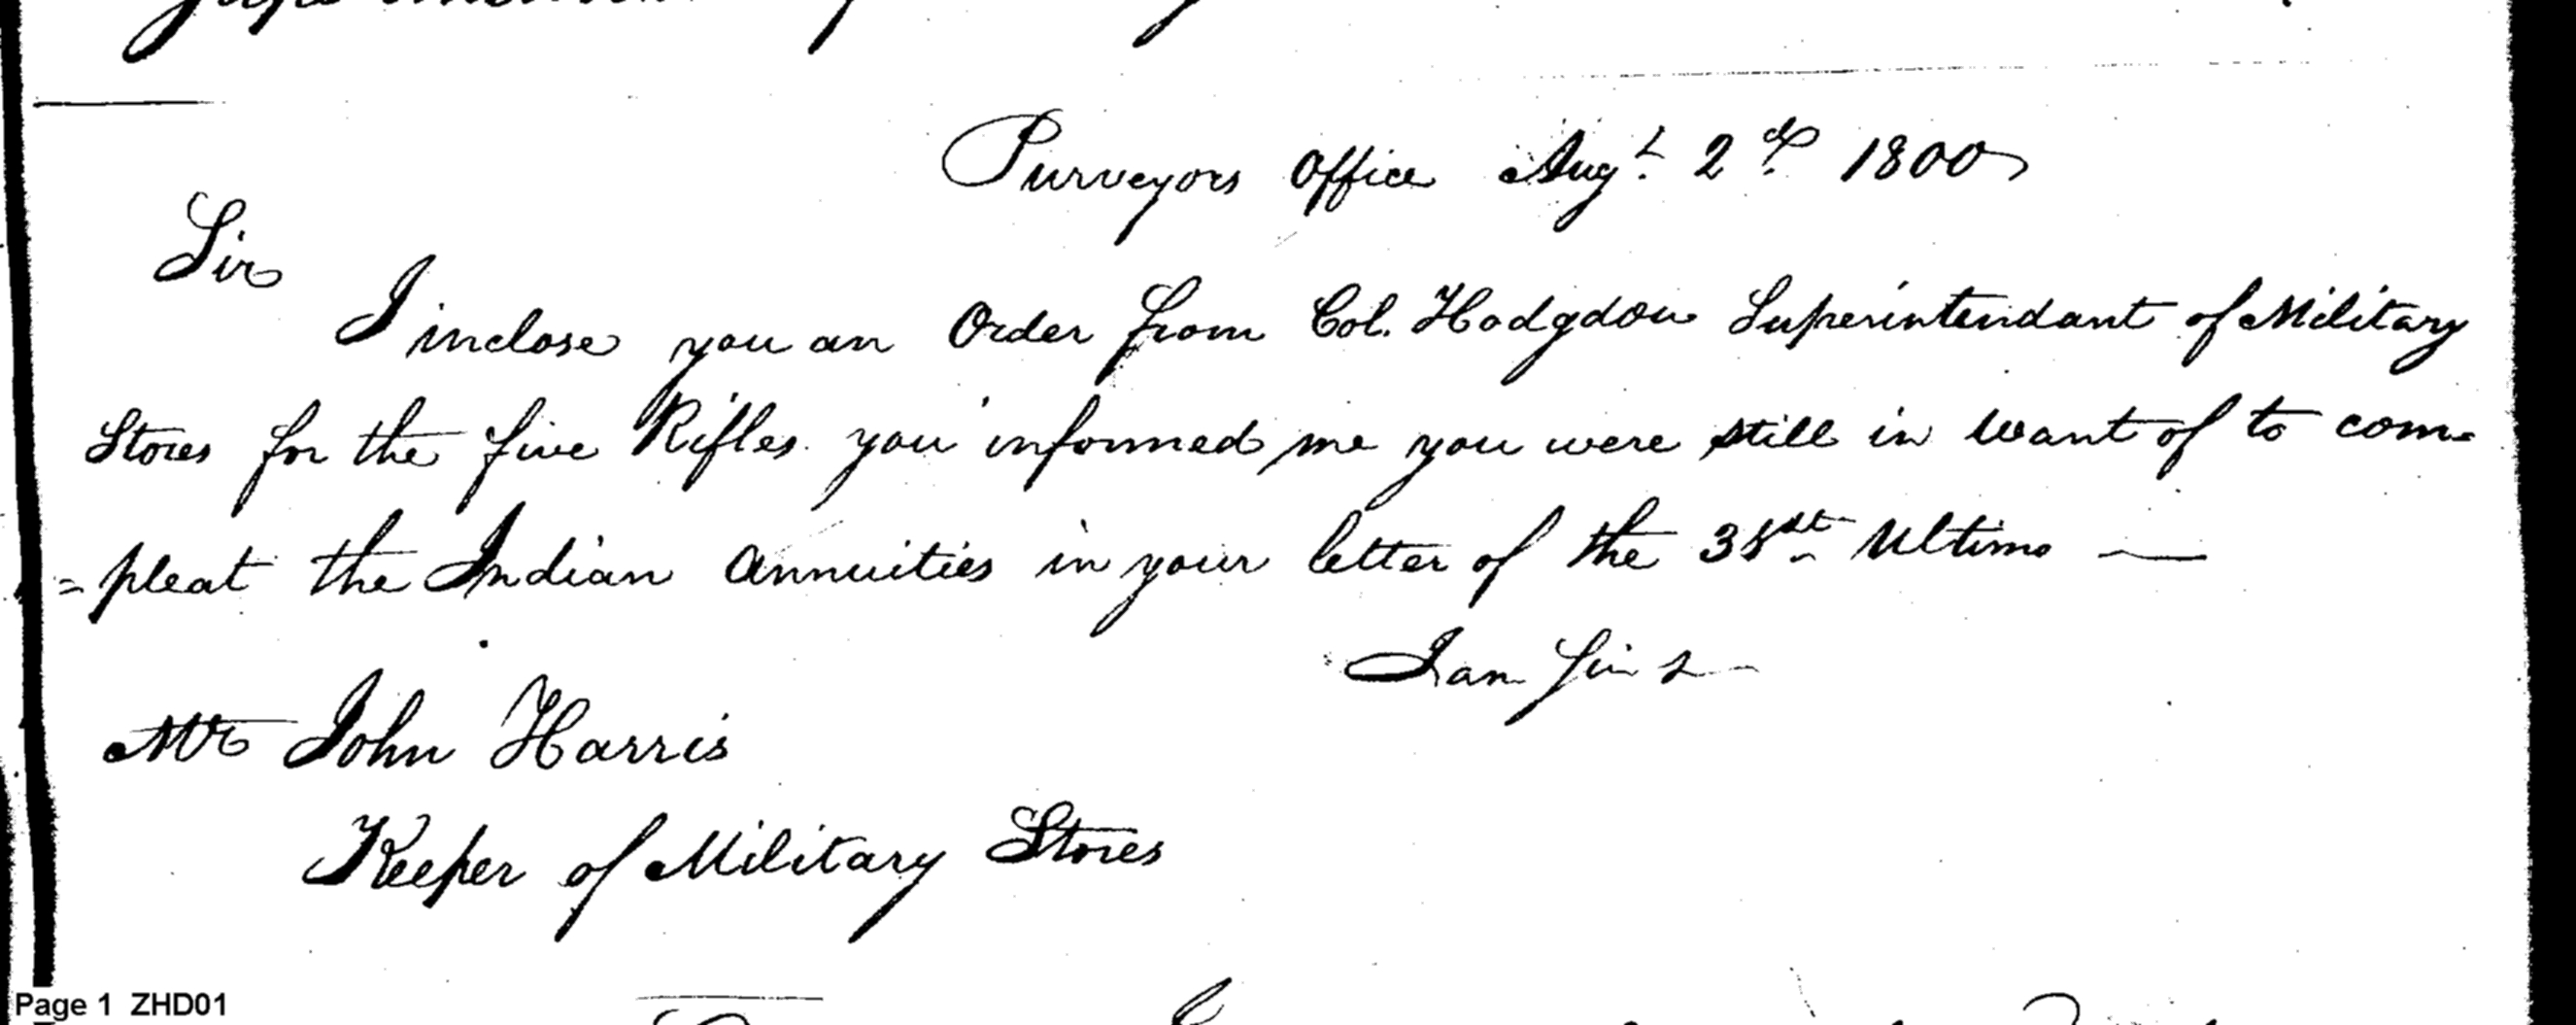 Purveyors Office Augt. 2d. 1800
Sir
I inclose you an Order from Col. Hodgdon Superintendant of Military
Stores for the five Rifles you informed me you were still in want of to com-
=pleat the Indian Annuities in your letter of the 31st Ultimo —
I am Sir &
Mr John Harris
Keeper of Military Stores
Page 1 ZHD01